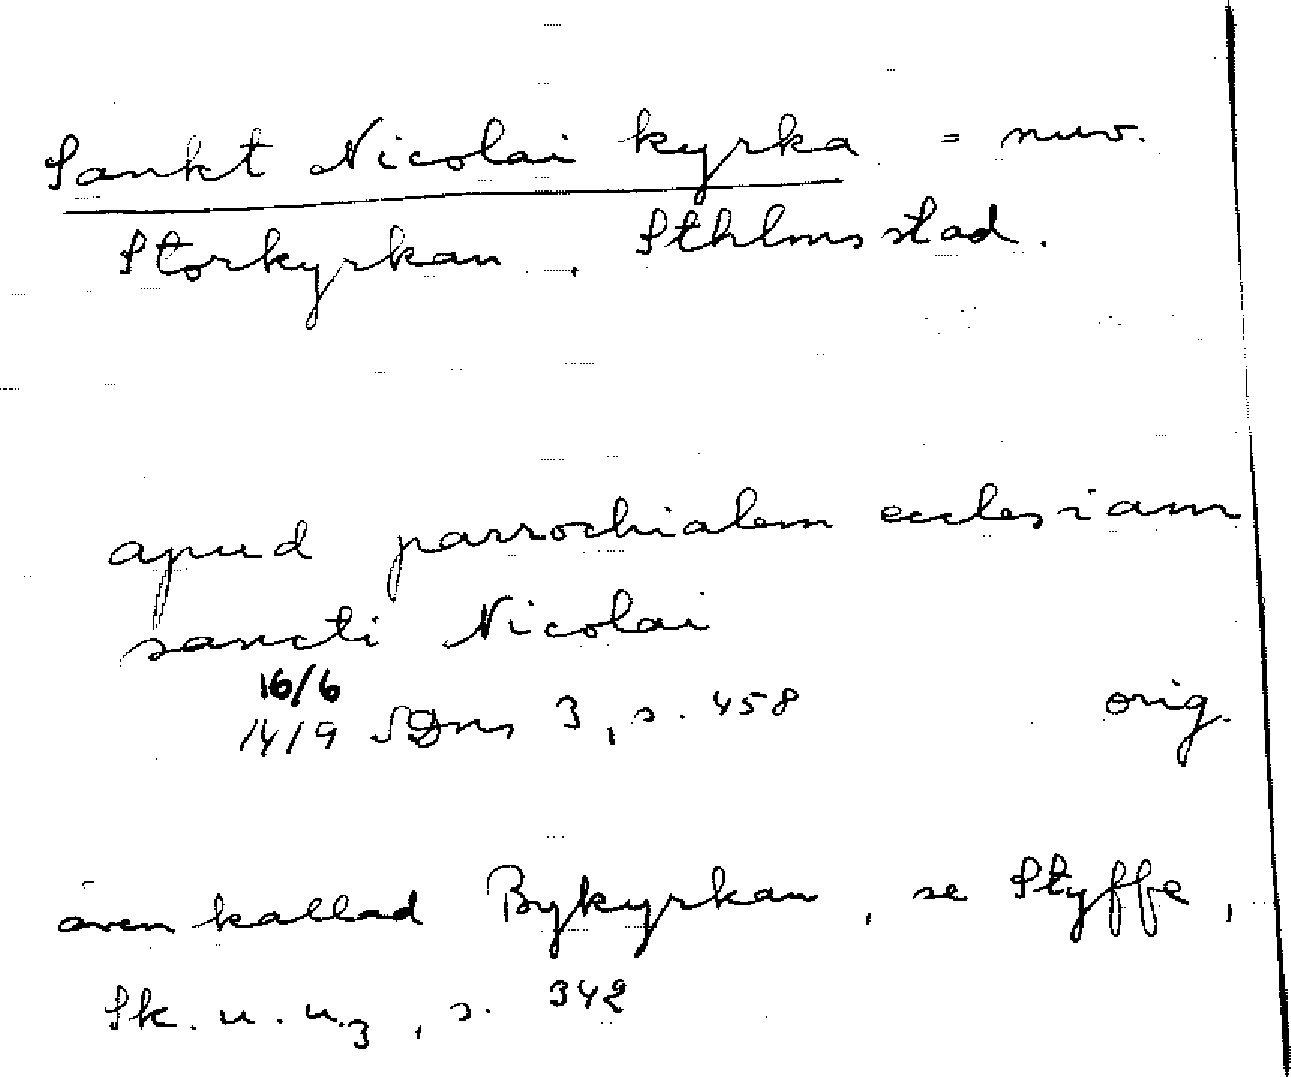 Sankt Nicolai kyrka = nuv.
Storkyrkan, Sthlms stad.
apud parrochialem ecclesiam
sancti Nicolai
16/6
1419 SDns 3, s. 458 orig.
även kallad Bykyrkan, se Styffe,
Sk. u. u.3, s. 342